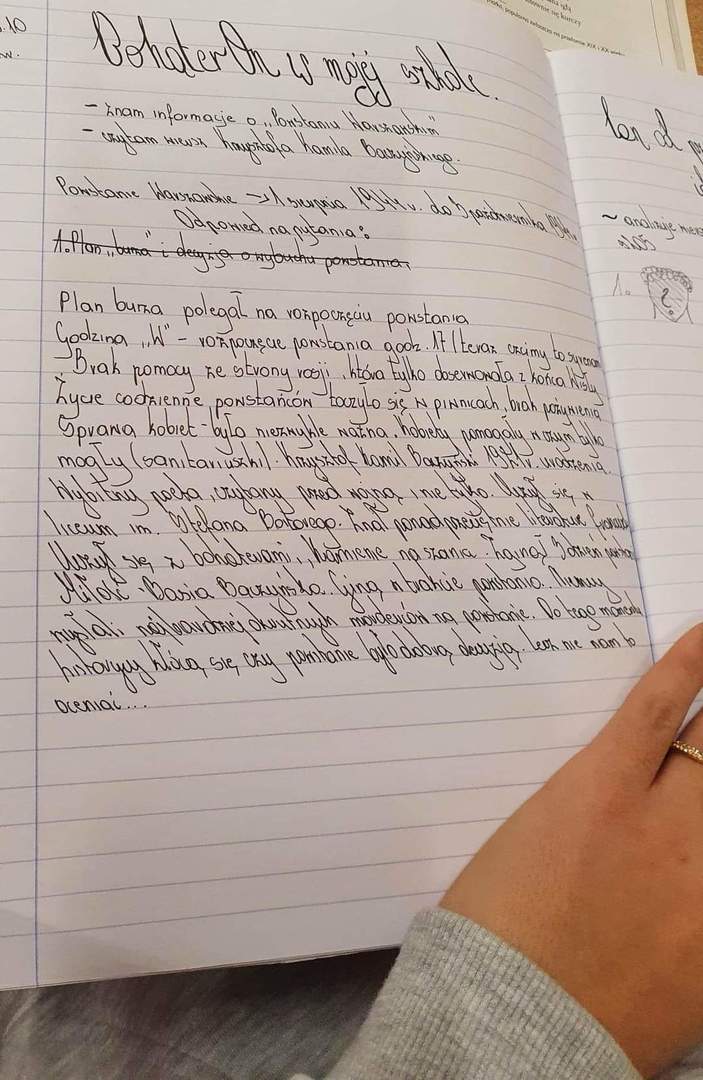 .10
w.
BohaterOn w mojej szkole.
- znam informacje o „Powstaniu Warszawskim"
- czytam wiersz Krzysztofa Kamila Baczyńskiego.
Powstanie Warszawskie → 1 sierpnia 1944 r. do 3 października 1944r.
Odpowiedź na pytania:
1. Plan „burza" i decyzja o wybuchu powstania.
Plan burza polegał na rozpoczęciu powstania
Godzina „W" - rozpoczęcie powstania godz. 17 (teraz czcimy to syrenami
Brak pomocy ze strony rosji, która tylko obserwowała z końca Wisły
Życie codzienne powstańców toczyło się w piwnicach, brak pożywienia
Sprawa kobiet - było niezwykle ważna. Kobiety pomagały w czym tylko
mogły (sanitariuszki). Krzysztof Kamil Baczyński urodzenia.
Wybitny poeta, czytany przed wojną i nie tylko. Uczył się w
liceum im. Stefana Batorego. Znał ponadprzeciętnie literaturę
Uczył się z bohaterami „Kamienie na szaniec. Zginął 3 dzień
Miłość - Basia Baczyńska. Zginą w trakcie powstania. Niemcy
wysłali najbardziej okrutnych morderców na powstanie. Do tego momentu
historycy kłócą się, czy powstanie było dobrą decyzją. Lecz nie nam to
oceniać...
~ analizuje
1.
?